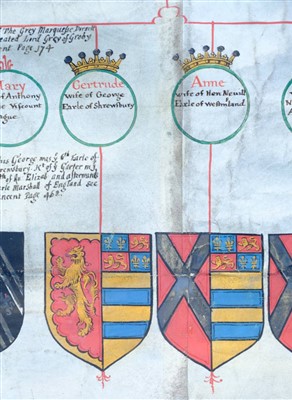 The Grey Marquesse Dorset
Created Lord Grey of Groby
Page 174
Mary
of Anthony
Viscount
Gertrude
wife of George
Earle of Shrewsbury
Anne
wife of Hen: Nevill
Earle of Westmland.
This George was ye 6th Earle of
Shrewsbury Kt of ye Garter
of Eliseb and afterwards
Earle Marshall of England see
Vincent Page